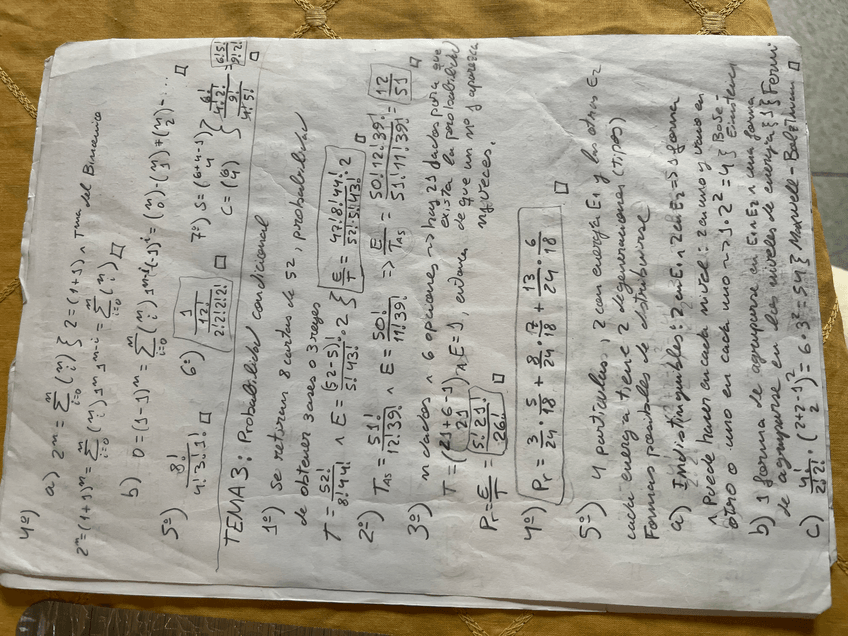 4º)
a) 2ⁿ = ∑ⁿᵢ₌₀ (n i) } 2 = (1+1) ∧ Tma del Binomio
2ⁿ = (1+1)ⁿ = ∑ⁿᵢ₌₀ (n i) 1ⁿ 1ⁿ⁻ⁱ = ∑ⁿᵢ₌₀ (n i) □
b) 0 = (1-1)ⁿ = ∑ⁿᵢ₌₀ (n i) 1ⁿ⁻ⁱ (-1)ⁱ = (n 0) - (n 1) + (n 2) - ...
5º) 8! / 4!3!1! □
6º) 1 / (12! / 2!2!2!2!) □
7º) S = (6+4-1 4)
C = (6 4) } (6! / 4!2!) / (9! / 4!5!) = 6!5! / 9!2! □
TEMA 3: Probabilidad condicional
1º) Se retiran 8 cartas de 52, probabilidad
de obtener 3 ases o 3 reyes
T = 52! / 8!44! ∧ E = (52-5)! / 5!43! · 2 } E/T = 47!8!44! / 52!5!43! · 2 □
2º) T_AS = 51! / 12!39! ∧ E = 50! / 11!39! => E/T_AS = 50!12!39! / 51!11!39! = 12/51
3º) n dados ∧ 6 opciones ~> hay 21 dados para que
exista la probabilidad
T = (21+6-1 21) ∧ E = 1, entonces de que un nº j aparezca
nj veces.
Pr = E/T = 5!21! / 26! □
4º) Pr = 3/24 · 5/18 + 8/24 · 7/18 + 13/24 · 6/18 □
5º) 4 partículas, 2 con energía E1 y las otras E2
cada energía tiene 2 degeneraciones (tipos)
Formas posibles de distribuirse
a) Indistinguibles: 2 en E1 ∧ 2 en E2 => 1 forma
∧ Puede haber en cada nivel: 2 en uno y cero en
otro o uno en cada uno ~> 1·2² = 4 } Bose-
Einstein
b) 1 forma de agruparse en E1 ∧ E2 ∧ una forma
de agruparse en los niveles de energía {1} Fermi
c) 4! / 2!2! · (2+2-1 2)² = 6·3² = 54 } Maxwell-Boltzmann □